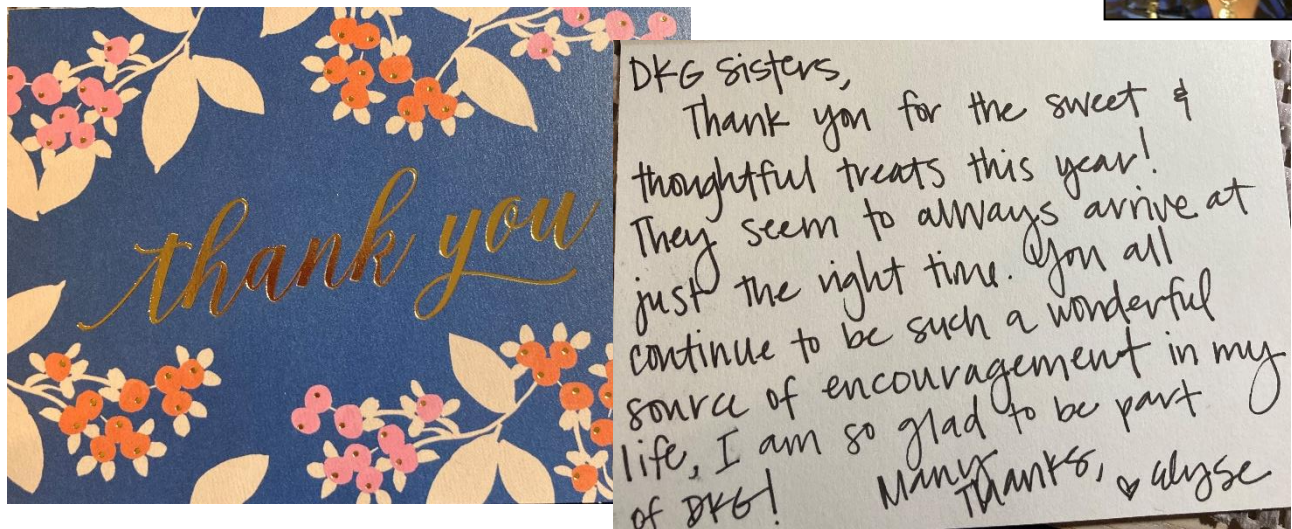 thank you
DKG Sisters,
Thank you for the sweet &
thoughtful treats this year!
They seem to always arrive at
just the right time. You all
continue to be such a wonderful
source of encouragement in my
life, I am so glad to be part
of DKG!
Many
Thanks, ♡ alyse